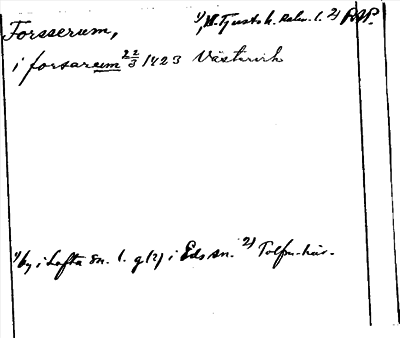 Forsserum, 1) N. Tjusts h. Kalm. l. 2) RAP.
i forsarum 22/3 1423 Västervik
1) by i Lofta sn. l. g(?) i Eds sn. 2) Tolfm.-här.